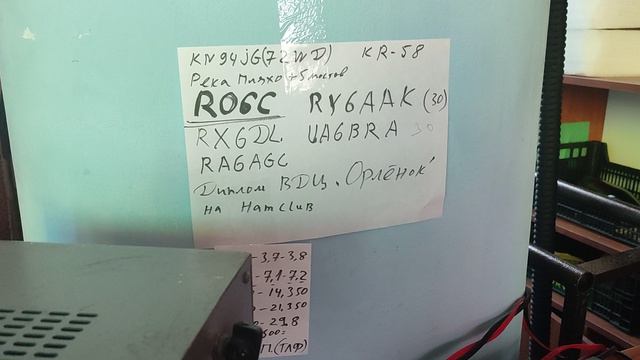 KN94jG(72WD) KR-58
Река Пшяхо + 5 мостов
R06C RY6AAK (30)
RX6DL UA6BRA 30
RA6AGC
Диплом ВДЦ "Орлёнок"
на Hamclub
-3,7-3,8
-7,1-7,2
-14,350
-21,350
-29.8
500=
П.(ТЛФ)